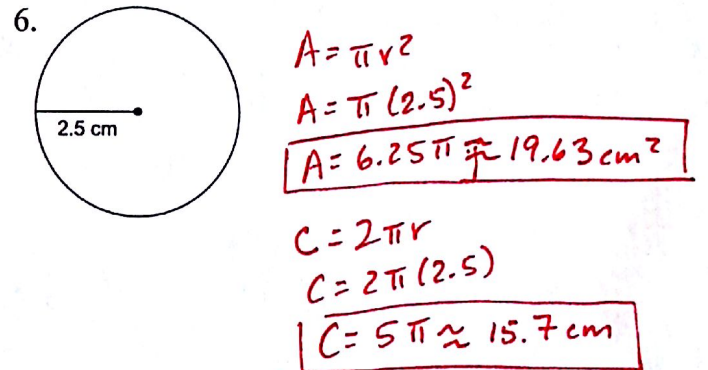 6.
2.5 cm
A = πr²
A = π(2.5)²
A = 6.25π ≈ 19.63 cm²
C = 2πr
C = 2π(2.5)
C = 5π ≈ 15.7 cm